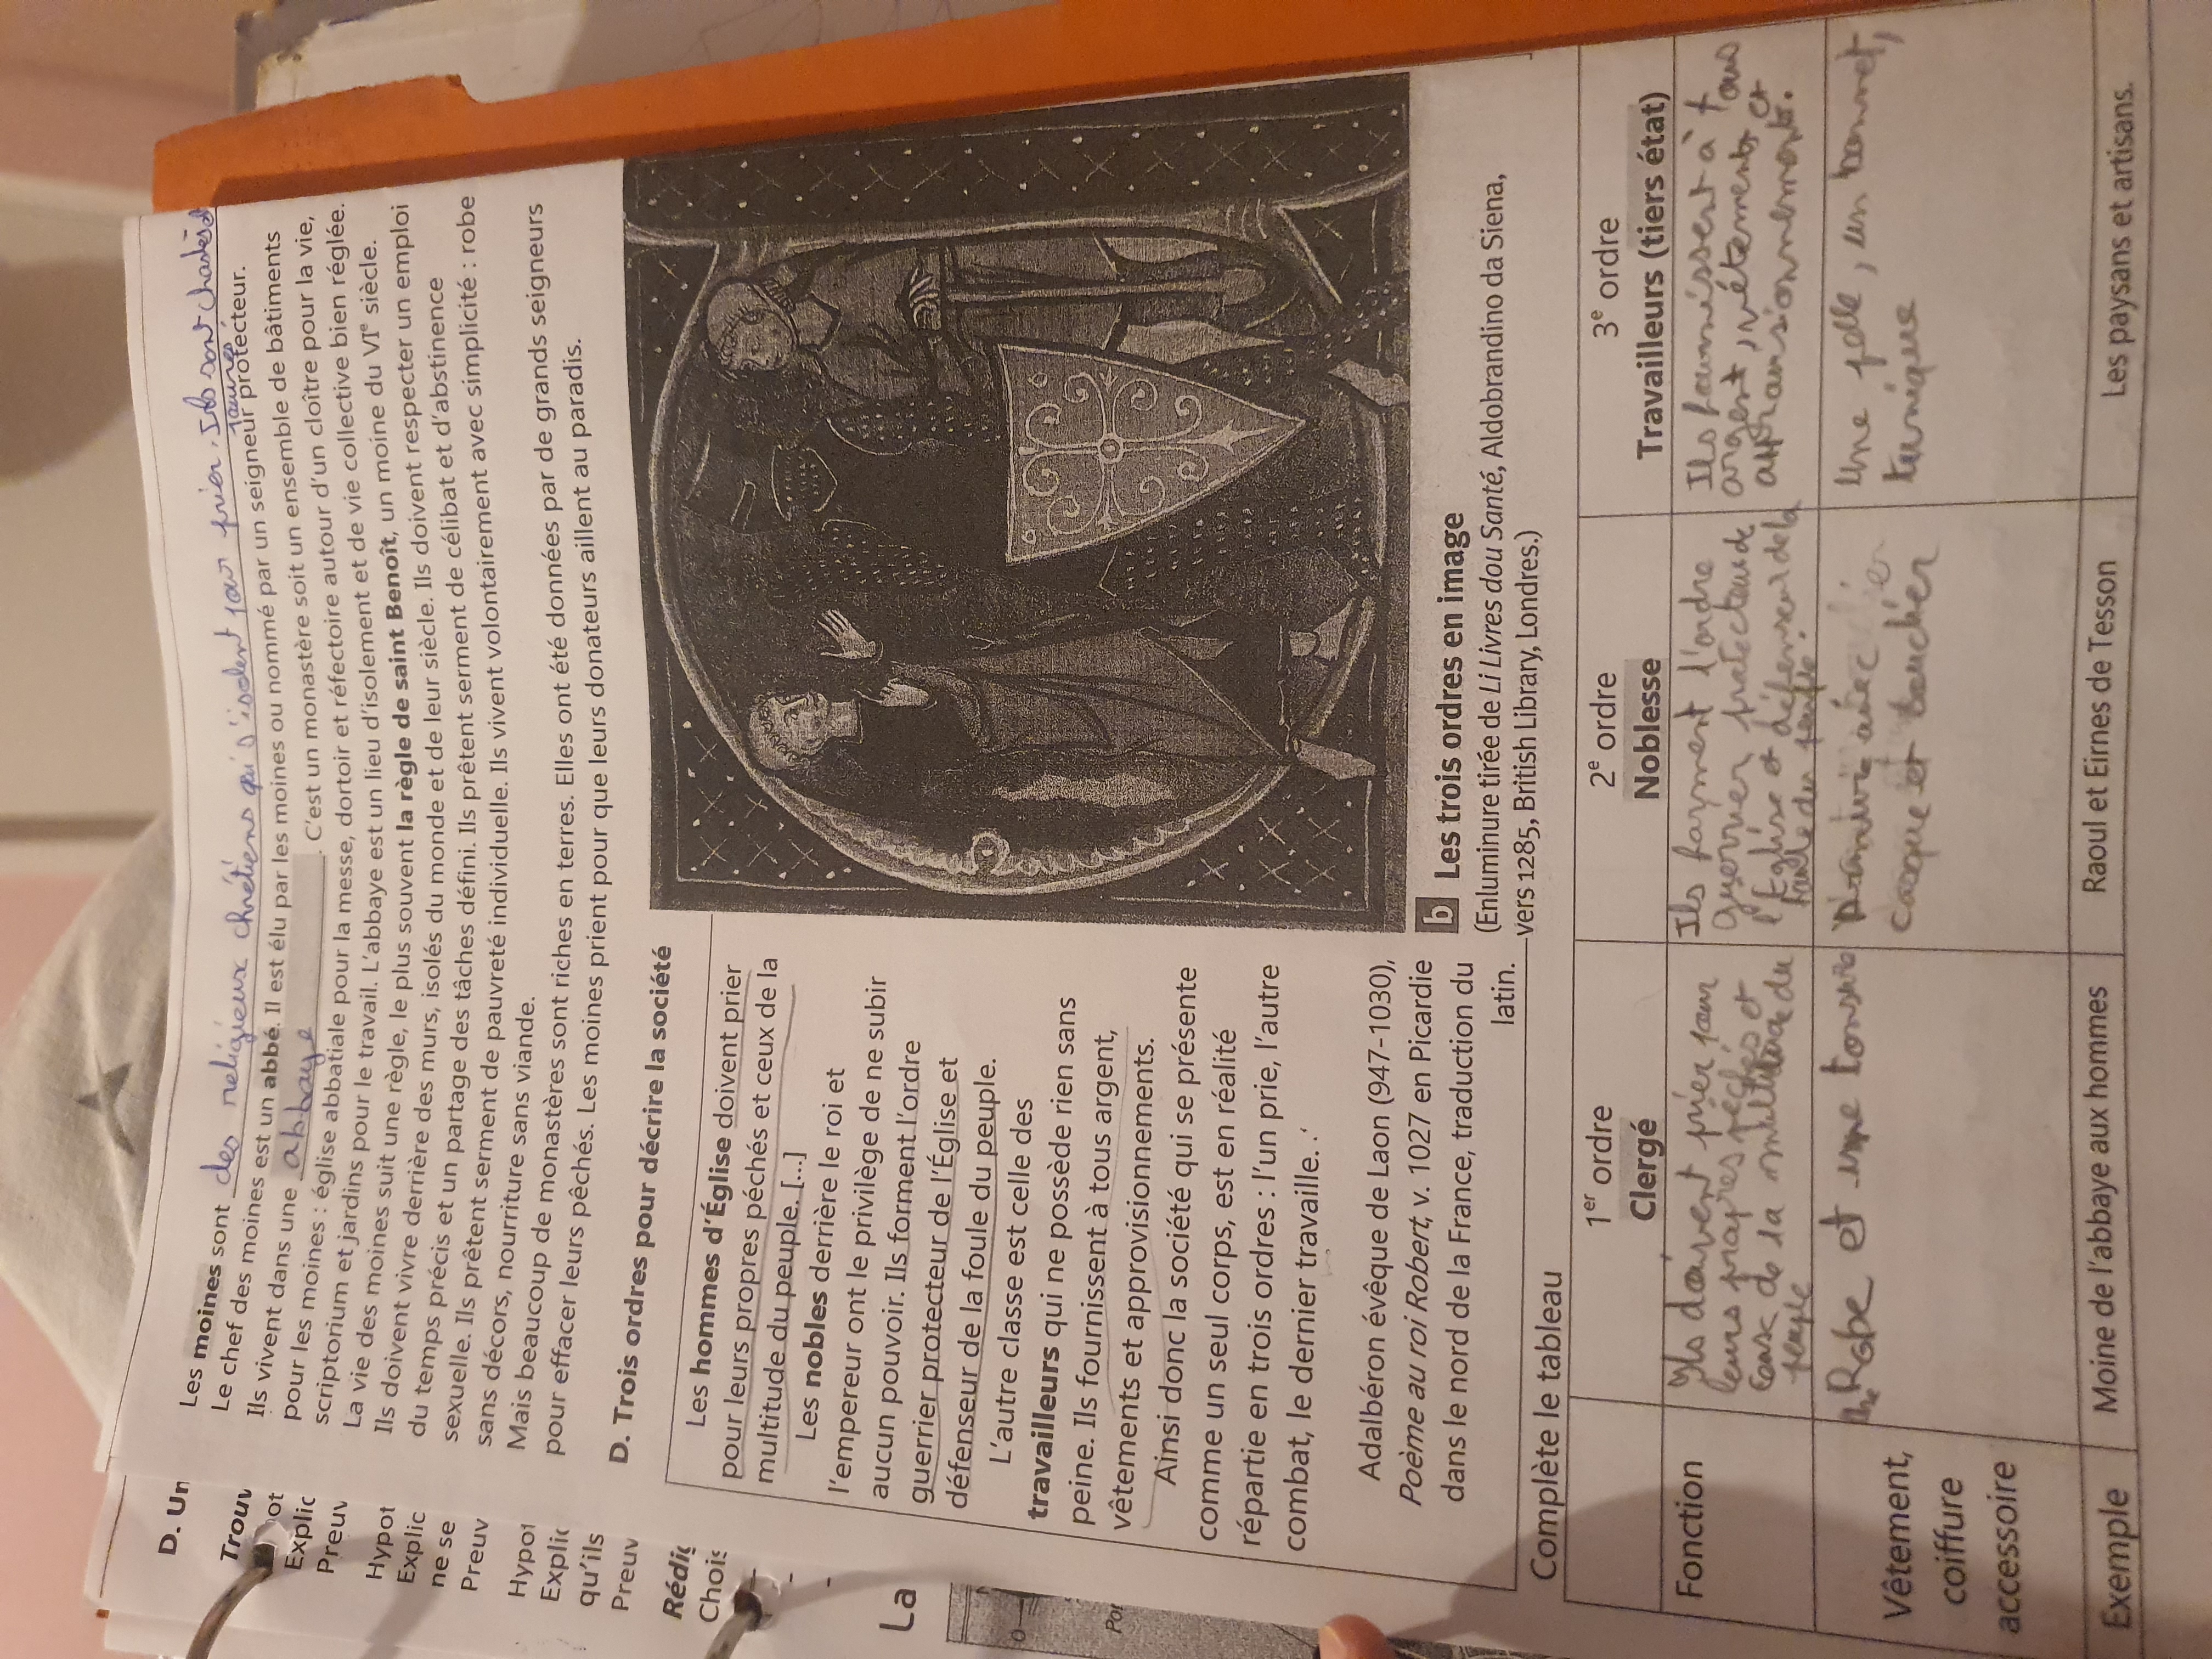 Les moines sont des religieux chrétiens qui s'isolent pour prier. Ils sont chastes et
pauvres
Le chef des moines est un abbé. Il est élu par les moines ou nommé par un seigneur protecteur.
Ils vivent dans une abbaye. C'est un monastère soit un ensemble de bâtiments
pour les moines : église abbatiale pour la messe, dortoir et réfectoire autour d'un cloître pour la vie,
scriptorium et jardins pour le travail. L'abbaye est un lieu d'isolement et de vie collective bien réglée.
La vie des moines suit une règle, le plus souvent la règle de saint Benoît, un moine du VIe siècle.
Ils doivent vivre derrière des murs, isolés du monde et de leur siècle. Ils doivent respecter un emploi
du temps précis et un partage des tâches défini. Ils prêtent serment de célibat et d'abstinence
sexuelle. Ils prêtent serment de pauvreté individuelle. Ils vivent volontairement avec simplicité : robe
sans décors, nourriture sans viande.
Mais beaucoup de monastères sont riches en terres. Elles ont été données par de grands seigneurs
pour effacer leurs pêchés. Les moines prient pour que leurs donateurs aillent au paradis.
D. Trois ordres pour décrire la société
Les hommes d'Église doivent prier
pour leurs propres péchés et ceux de la
multitude du peuple. [...]
Les nobles derrière le roi et
l'empereur ont le privilège de ne subir
aucun pouvoir. Ils forment l'ordre
guerrier protecteur de l'Église et
défenseur de la foule du peuple.
L'autre classe est celle des
travailleurs qui ne possède rien sans
peine. Ils fournissent à tous argent,
vêtements et approvisionnements.
Ainsi donc la société qui se présente
comme un seul corps, est en réalité
répartie en trois ordres : l'un prie, l'autre
combat, le dernier travaille...
Adalbéron évêque de Laon (947-1030),
Poème au roi Robert, v. 1027 en Picardie
dans le nord de la France, traduction du
latin.
b Les trois ordres en image
(Enluminure tirée de Li Livres dou Santé, Aldobrandino da Siena,
vers 1285, British Library, Londres.)
Complète le tableau
1er ordre
Clergé
2e ordre
Noblesse
3e ordre
Travailleurs (tiers état)
Fonction
Ils doivent prier pour
leurs propres péchés et
ceux de la multitude du
peuple
Ils forment l'ordre
guerrier protecteur de
l'Église et défenseur de la
foule du peuple.
Ils fournissent à tous
argent, vêtements et
approvisionnements.
Vêtement,
coiffure
accessoire
Robe et une
casque et bouclier
Une pelle, un bonnet,
tunique
Exemple
Moine de l'abbaye aux hommes
Raoul et Eirnes de Tesson
Les paysans et artisans.
D. Un
Trouv
Explic
Preuv
Hypot
Explic
ne se
Preuv
Hypot
Explic
qu'ils
Preuv
Rédig
Chois
La
0
Por